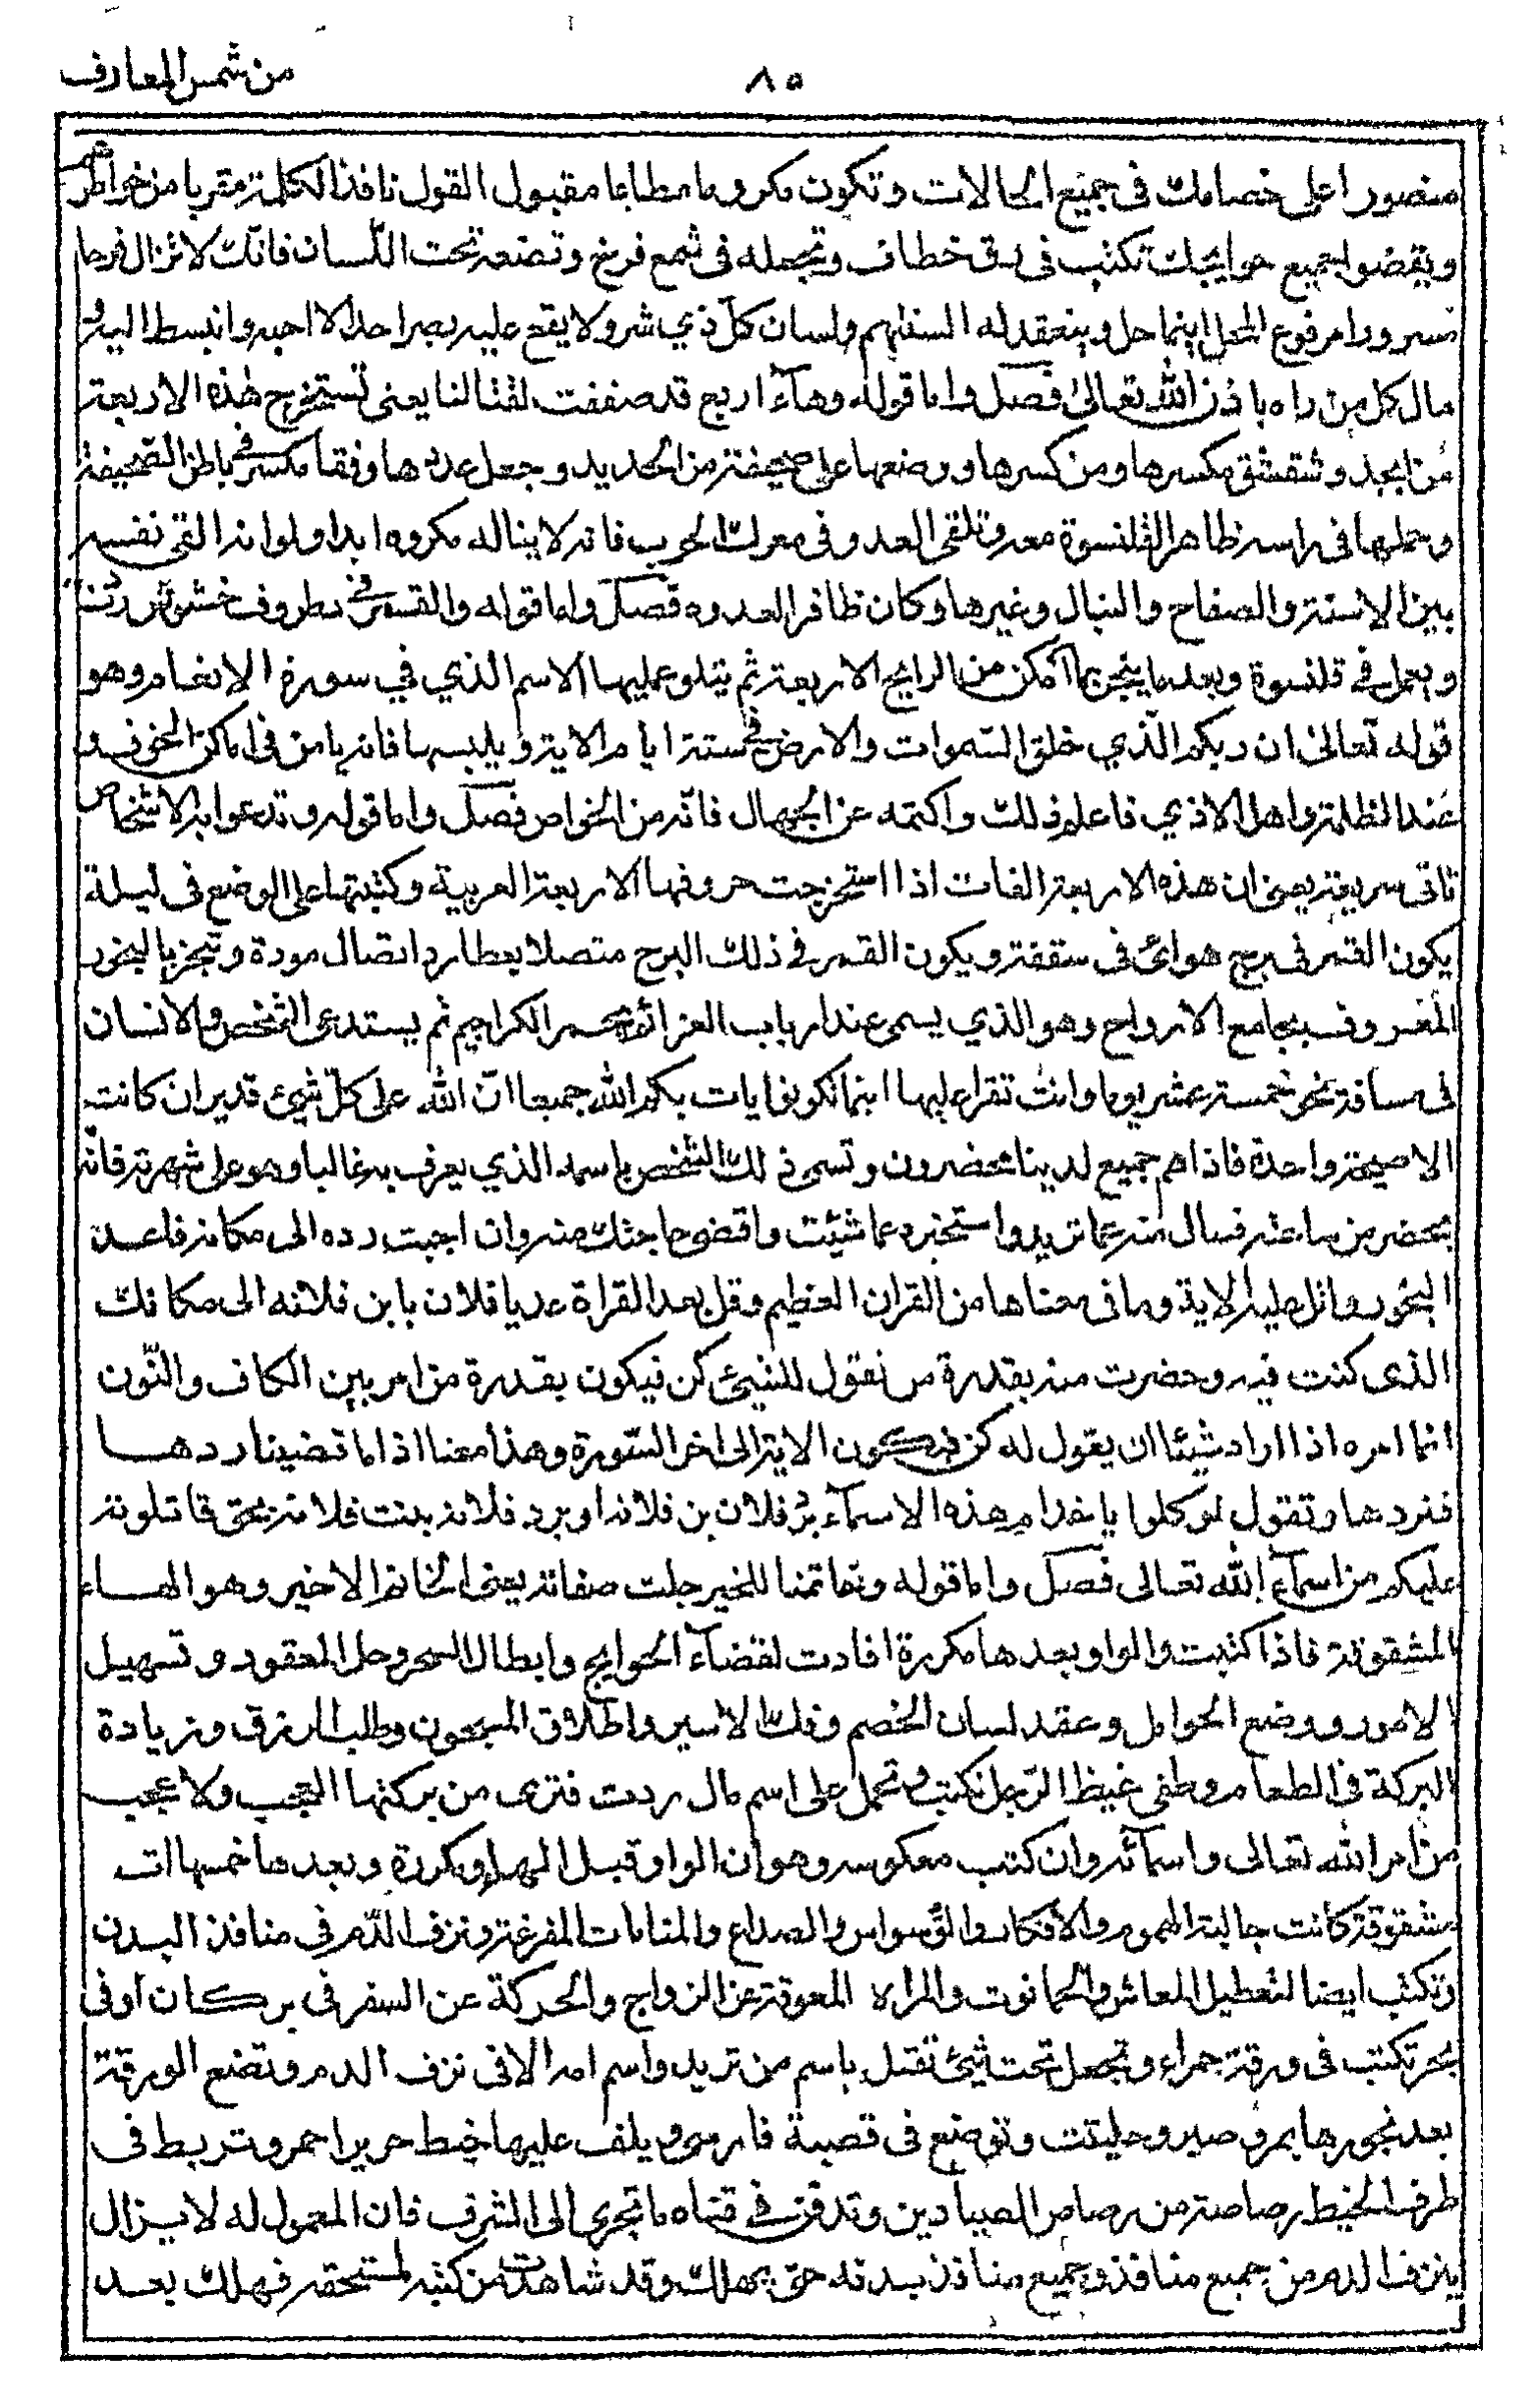 من شمس المعارف
٨٥
منصورا على خصامك فى جميع الحالات وتكون مكروما مطاعا مقبول القول نافذ الكلمة مقربا من خواطر
ويقضوا جميع حوايجك تكتب فى رق خطاف وتجعله فى شمع فرنج وتضعه تحت اللسان فانك لا تزال فرحا
مسرورا مرفوع المحل اينما حل وينعقد له السنتهم ولسان كل ذي شر ولا يقع عليه بصر احد الا احبه وانبسط اليه و
مال كل من راه باذن الله تعالى فصل واما قوله وهاء اربع قد صففت لفنائنا يعنى تستخرج هذه الاربعة
من ابجد وشقشق مكسرها ومن كسرها ووضعها على صحيفة من الحديد وجعل عددها وفقا مكسر فى باطن الصحيفة
وحملها فى راسه ظاهر القلنسوة معه وتلقى العدو فى معرك الحرب فانه لا يناله مكروه ابدا ولو انه القى نفسه
بين الاسنة والصفاح والنبال وغيرها وكان ظافر العدوه فصل واما قوله والقسم فى
ويعمل فى قلنسوة وبعد ما يبخر بما امكن من الرايح الاربعة ثم يتلو عليها الاسم الذي في سورة الانعام وهو
قوله تعالى ان ربكم الّذي خلق السّموات والارض فى ستة ايام الاية ويلبسها فانه يامن فى اماكن الخوف و
عند الظلمة واهل الاذي فاعلم ذلك واكتمه عن الجهال فانّه من الخواص فصل واما قوله وتدعوا به الاشخاص
تاتى سريعة يعنى ان هذه الاربعة الفات اذا استخرجت حروفها الاربعة العربية وكتبتها على الوضع فى ليلة
يكون القمر فى برج هوائى فى سقفة ويكون القمر فى ذلك البرج متصلا بعطارد اتصال مودة وتبخر بالبخور
المعروف بجامع الارواح وهو الذي يسمى عند ارباب العزائم ثم يستدعى الشخص والانسان
فى مسافة نحو خمسة عشر يوما وانت تقرا عليها اينما تكونوا يات بكم الله جميعا انّ الله على كلّ شيئ قدير ان كانت
الا صيحة واحدة فاذا هم جميع لدينا محضرون وتسمى ذلك الشخص باسمه الذي يعرف به غالبا وهو على شهرته فانّه
يحضر من ساعته فسال منه عما تريد واستخبره عما شيئت واقضى حاجتك منه وان احببت رده الى مكانه فاعد
البخور واتل عليه الاية وما فى معناها من القران العظيم وقل بعد القراة عد يا فلان يا بن فلانه الى مكانك
الذى كنت فيه وحضرت منه بقدرة من تقول للشيئ كن فيكون بقدرة من امر بين الكاف والنّون
انما امره اذا اراد شيئا ان يقول له كن فيكون الاية الى اخر السّورة وهذا معنا اذا ما قضينا ردها
فنردها وتقول توكلوا يا خدام هذه الاسماء برد فلان بن فلانه او برد فلانه بنت فلانة بحق ما تلوته
عليكم من اسماء الله تعالى فصل واما قوله وخاتمنا للخير جلت صفاته يعنى الخاتم الاخير وهو الهاء
المشقوقة فاذا كتبت والواو بعدها مكررة افادت لقضاء الحوايج وابطال السحر وحل المعقود وتسهيل
الامور ووضع الحوامل وعقد لسان الخصم وفك الاسير واطلاق المسجون وطلب الرزق وزيادة
البركة فى الطعام وطفى غيظ الرّجل تكتب وتحمل على اسم مال ردت فترى من بركتها العجب ولا عجب
من امر الله تعالى واسمائه وان كتب معكوسه وهو ان الواو قبل الهاء ومكررة وبعدها خمسها ات
مشقوقة كانت جالبة الهموم والافكار والوسواس والصداع والمنامات المفزعة ونزف الدّم فى منافذ البدن
وتكتب ايضا لتعطيل المعاش والحانوت والمراه المعوقة عن الزواج والحركة عن السفر فى بر كان او فى
بحر تكتب فى ورقة حمراء وتجعل تحت شيئ ثقيل باسم من تريد واسم امه الا فى نزف الدم وتضع الورقة
بعد بخورها بمر وصبر وحلتيت وتوضع فى قصبة فارسى ويلف عليها خيط حرير احمر وتربط فى
طرف الخيط رصاصة من رصاص الصيادين وتدفن فى قناه ما تجري الى الشرق فان المعمول له لا يزال
ينزف الدم من جميع منافذ وجميع منافذ بدنه حتى يهلك وقد شاهدت من كتبه لمستحقه فهلك بعد